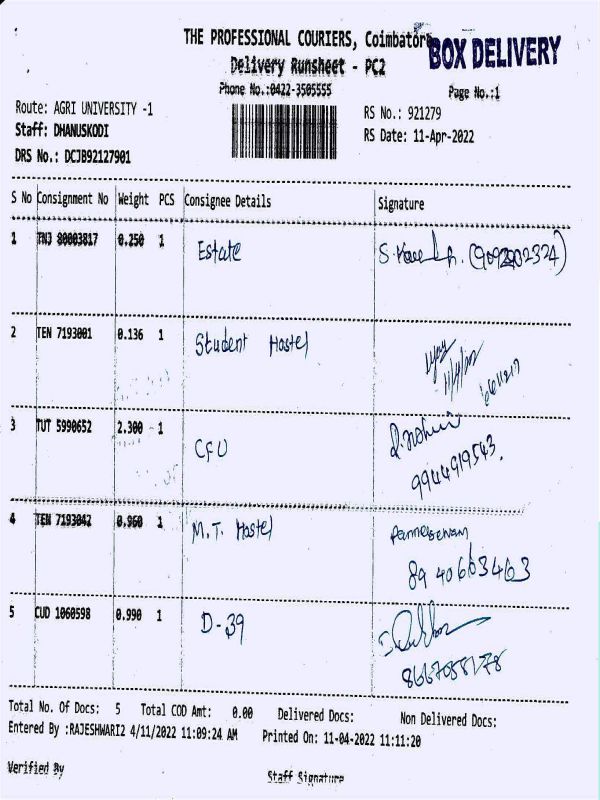 THE PROFESSIONAL COURIERS, Coimbatore
BOX DELIVERY
Delivery Runsheet - PC2
Phone No.:0422-3505555
Page No.:1
Route: AGRI UNIVERSITY -1
RS No.: 921279
Staff: DHANUSKODI
RS Date: 11-Apr-2022
DRS No.: DCJB92127901
S No Consignment No Weight PCS Consignee Details Signature
1 TNJ 80003817 0.250 1 Estate
2 TEN 7193001 0.136 1 Student Hostel
3 TUT 5990652 2.300 1 CFU
9944919543.
4 TEN 7193042 0.960 1 M.T. Hostel
8940663463
5 CUD 1060598 0.990 1 D-39
Total No. Of Docs: 5 Total COD Amt: 0.00 Delivered Docs: Non Delivered Docs:
Entered By :RAJESHWARI2 4/11/2022 11:09:24 AM Printed On: 11-04-2022 11:11:20
Verified By
Staff Signature